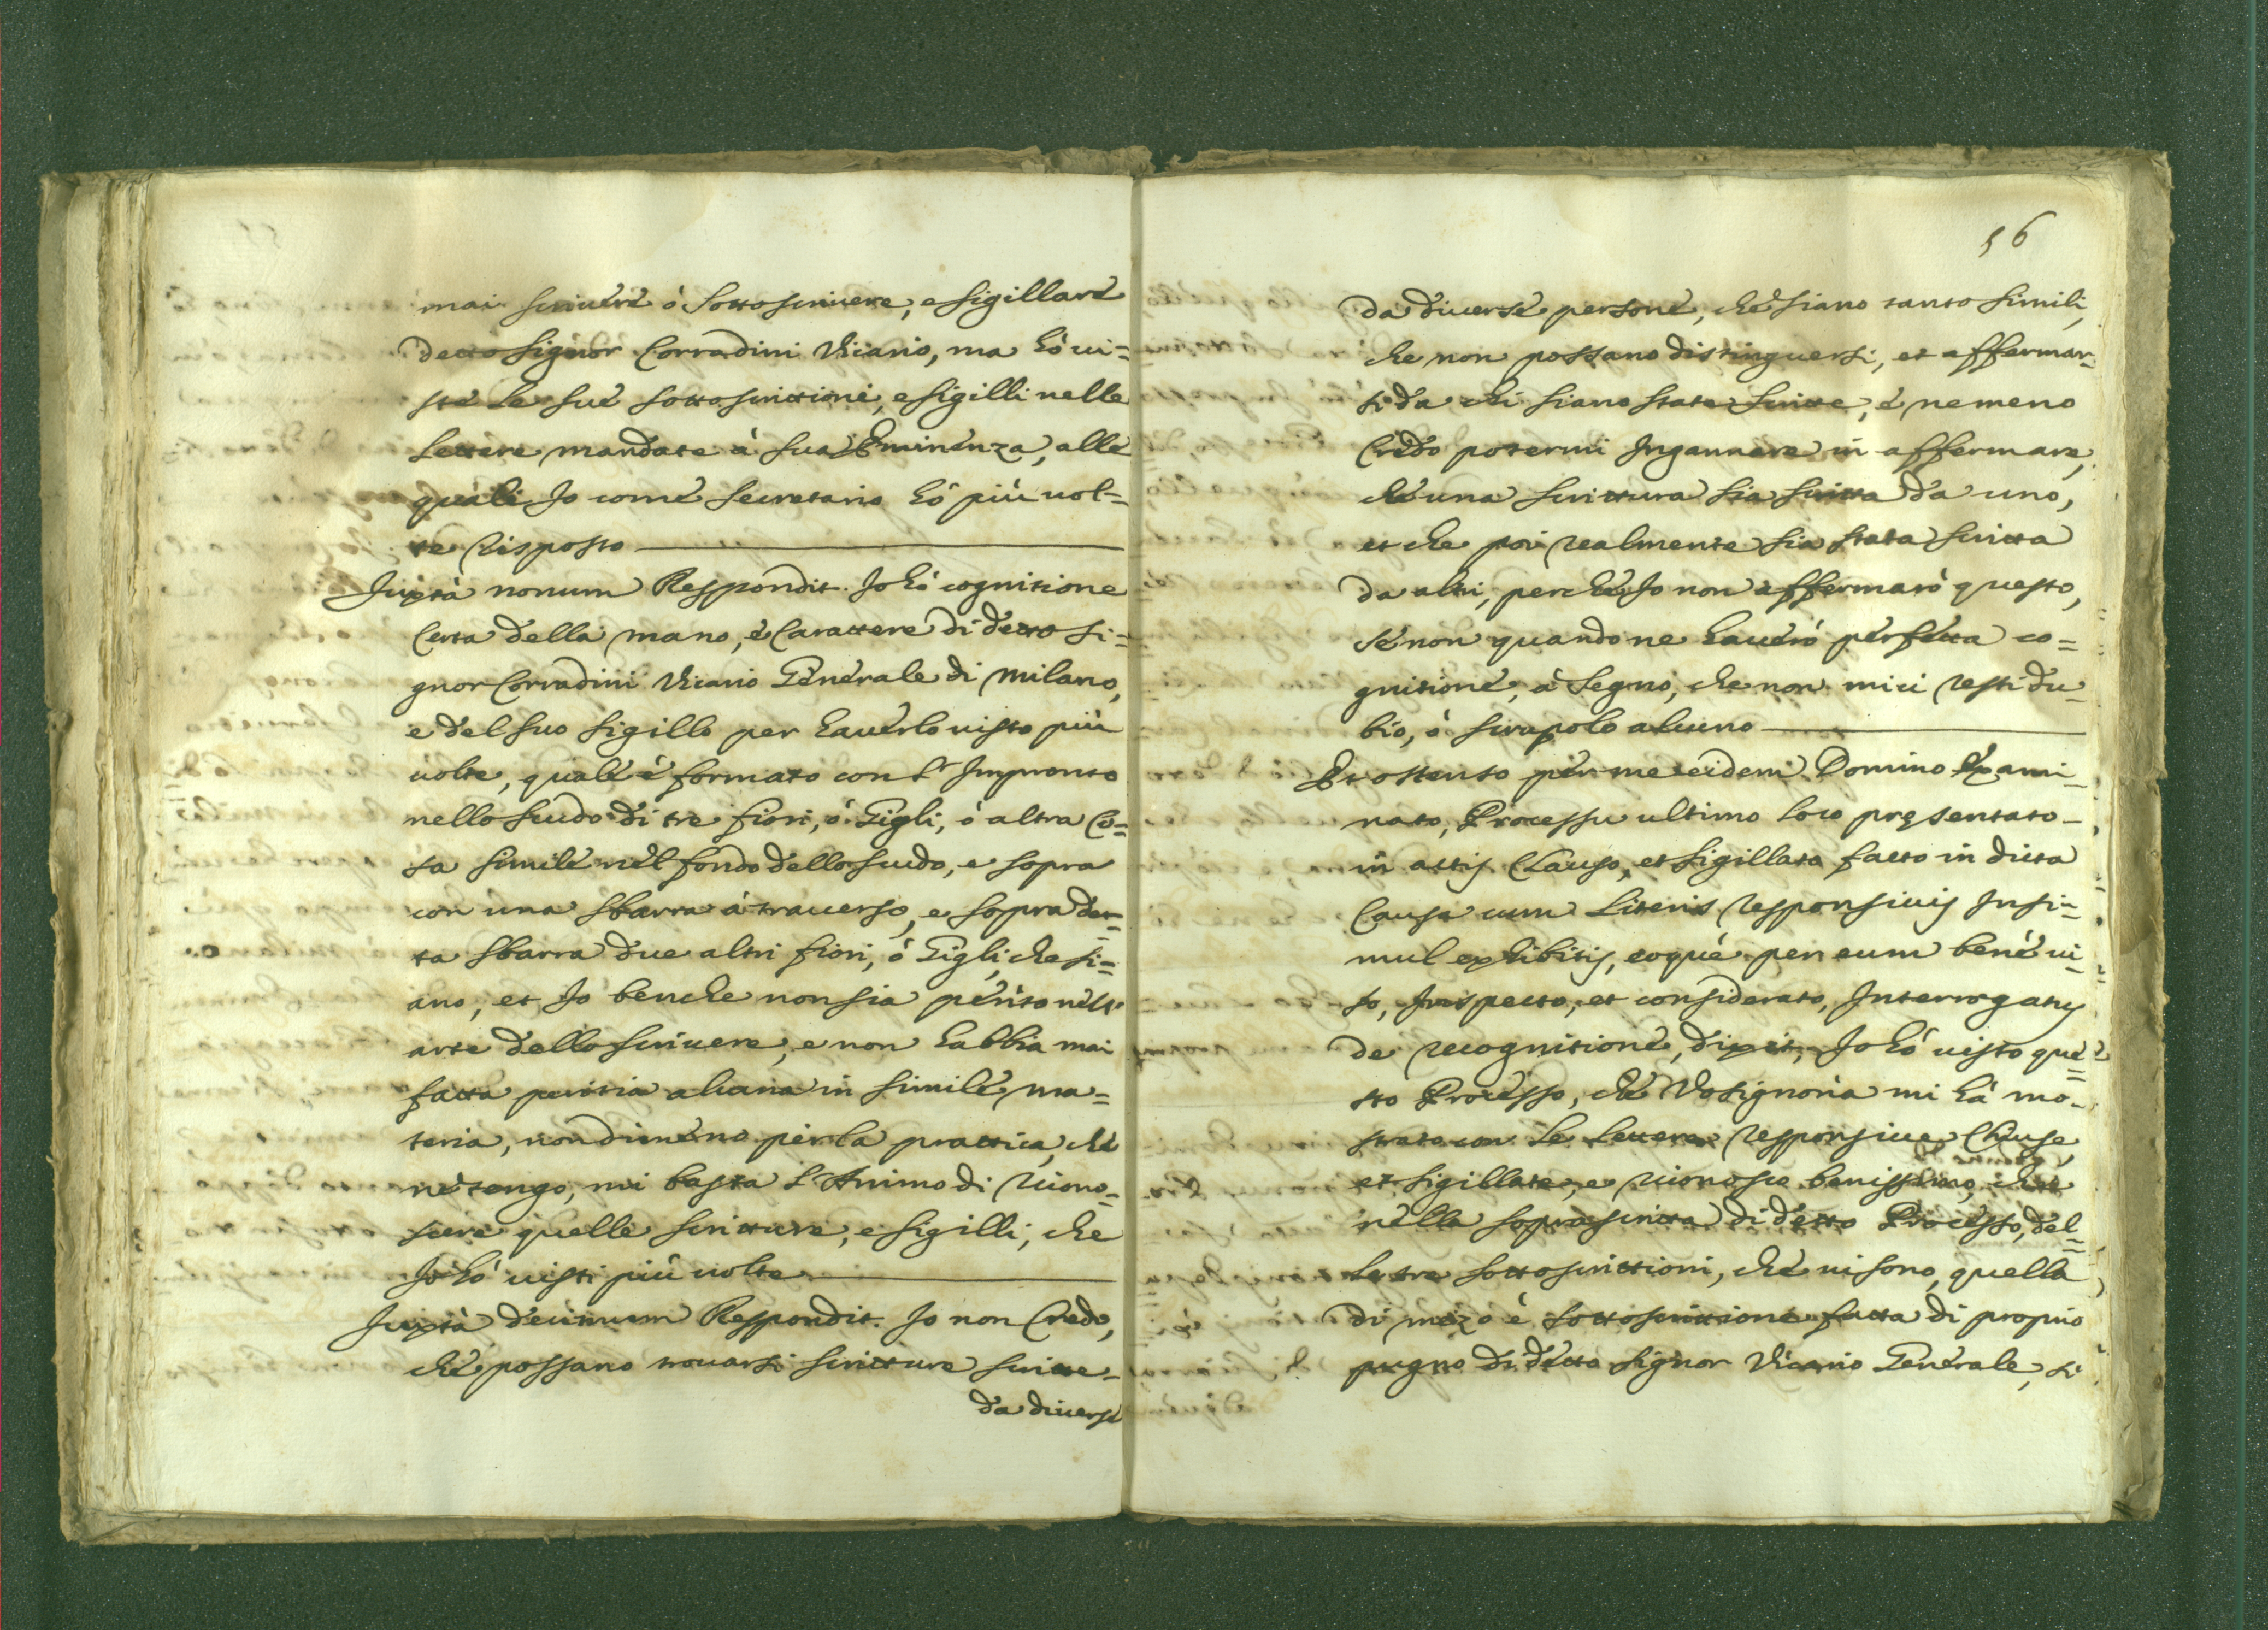 mai scriuere ò sottoscriuere, e sigillare
detto signor Corradini Vicario, ma hò ui=
ste le sue sottoscrittioni, e sigilli nelle
lettere mandate à sua Eminenza, alle
quali Jo come secretario hò più uol=
te risposto
Juxtà nonum Respondit. Jo hò cognitione
certa della mano, è Carattere di detto si=
gnor Corradini Vicario Generale di Milano,
e del suo sigillo per hauerlo uisto più
uolte, quale è formato con l' Impronto
nello scudo di tre fiori, ò Gigli, ò altra co=
sa simile nel fondo dello scudo, e sopra
con una sbarra à trauerso, e sopra det=
ta sbarra due altri fiori, ò Gigli, che si=
ano, et Jo benche non sia perito nell'
arte dello scriuere, e non habbia mai
fatta peritia alcuna in simile ma=
teria, nondimeno per la prattica, che
ne tengo, mi basta l'Animo di ricono=
scere quelle scritture, e sigilli, che
Jo hò uisti più uolte
Juxtà decimum Respondit. Jo non Credo,
che possano trouarsi scritture scritte
da diuerse
56
da diuerse persone, che siano tanto simili,
che non possano distinguersi, et affermar=
si da chi siano state scritte, è nemeno
Credo potermi Ingannare in affermare,
che una scrittura sia scritta da uno,
et che poi realmente sia stata scritta
da altri, perche Jo non affermarò questo,
se non quando ne hauerò perfetta co=
gnitione, à segno, che non mi ci resti du=
bio, ò scrupolo alcuno
Et ostenso per me eidem Domino Exami=
nato, Processu ultimo loco pręsentato
in actis Clauso, et sigillato facto in dicta
Causa cum Literis responsiuis Insi=
mul exhibitis, eoquè per eum benè ui=
so, Inspecto, et considerato, Interrogatus
de recognitione, dixit, Jo hò uisto que=
sto Processo, che Vosignoria mi hà mo=
strato con le lettere responsiue Chiuse,
et sigillate, e riconosco benissimo, che
nella soprascritta di detto Processo, del=
le tre sottoscrittioni, che ui sono, quella
di mezo è sottoscrittione fatta di proprio
pugno di detto signor Vicario Generale, si